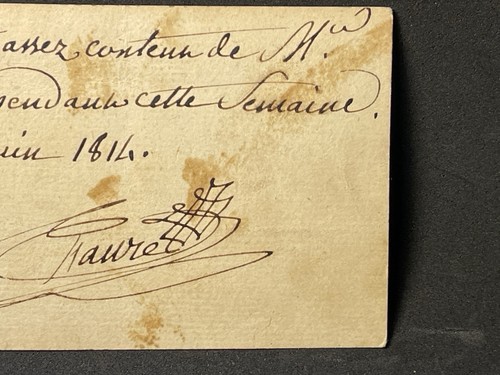 assez contenu de M.r
pendant cette Semaine.
uin 1814.
Fauret